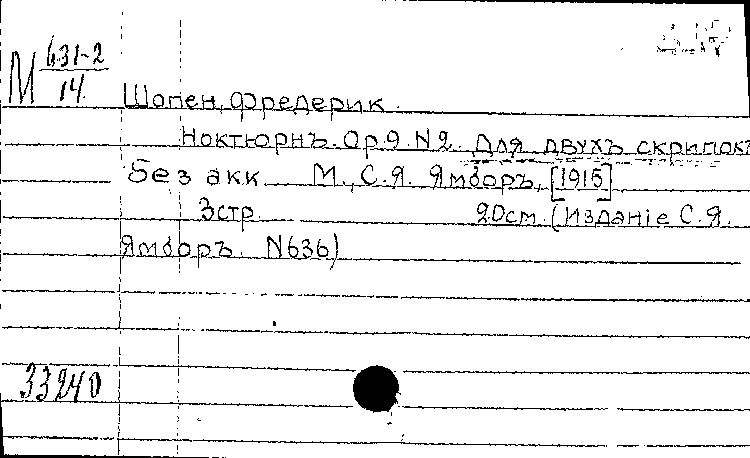 М 631-2
14
Шопен, Фредерик.
Ноктюрнъ. Ор.9. N2. Для двухъ скрипокъ
без акк М., С.Я. Ямборъ, [1915]
3стр. 20см. (Изданіе С.Я.
Ямборъ. N636)
33240